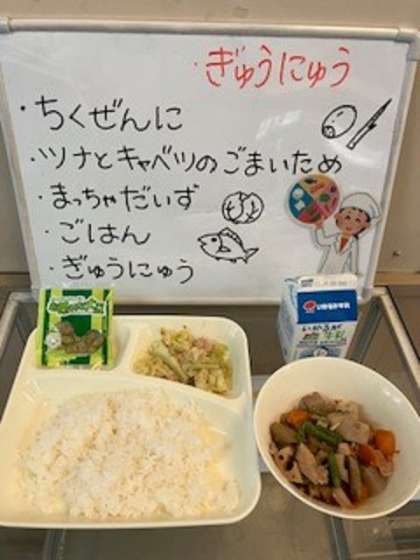 ・ぎゅうにゅう
・ちくぜんに
・ツナとキャベツのごまいため
・まっちゃだいず
・ごはん
・ぎゅうにゅう